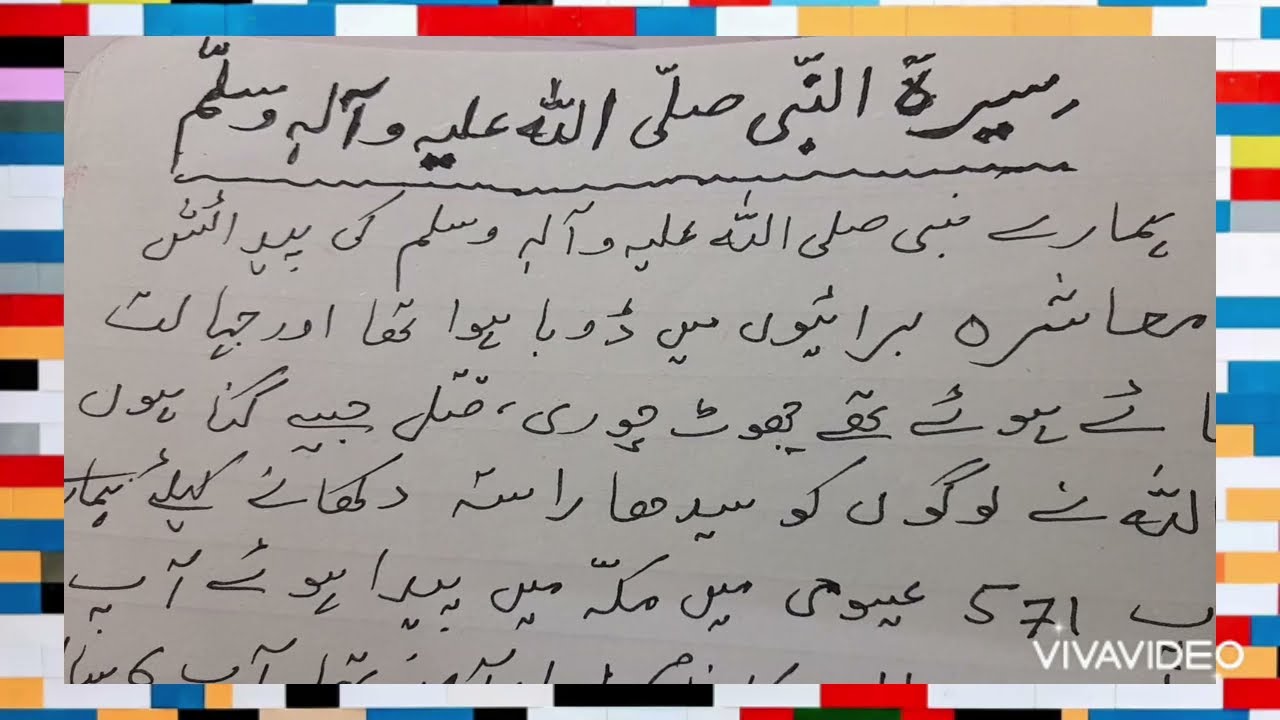 سیرۃ النّبی صلّی اللہ علیہ وآلہٖ وسلّم
ہمارے نبی صلی اللہ علیہ وآلہٖ وسلم کی پیدائش
معاشرہ برائیوں میں ڈوبا ہوا تھا اور جہالت
ئے ہوئے تھے جھوٹ چوری، قتل جیسے گناہوں
اللہ نے لوگوں کو سیدھا راستہ دکھانے کیلئے ہمار
571 عیسوی میں مکہّ میں پیدا ہوئے آپ
آپ 6 سا
VIVAVIDEO